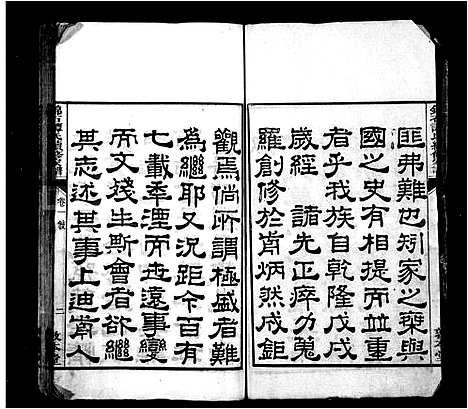 匪弗難也矧家之乘與
國之史有相提而並重
者乎我族自乾隆戊戌
歲經 諸先正瘁力蒐
羅創修於前炳然成鉅
觀焉倘所謂極盛者難
為繼耶又況距今百有
七載年湮而世遠事變
而文殘生斯會者欲繼
其志述其事上迪前人
卷一
二
敦本堂